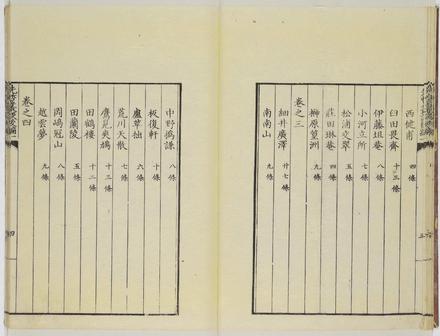 西健甫 四條
臼田畏齊 十三條
伊藤坦菴 八條
小河立所 九條
松浦交翠 五條
莊田琳菴 四條
榊原篁洲 九條
卷之三
細井廣澤 廿七條
南南山 九條
中野撝謙 八條
板復軒 十條
盧草拙 六條
荒川天散 七條
鷹見爽鳩 十三條
田鶴樓 十二條
田蘭陵 五條
岡嶋冠山 八條
越雲夢 九條
卷之四